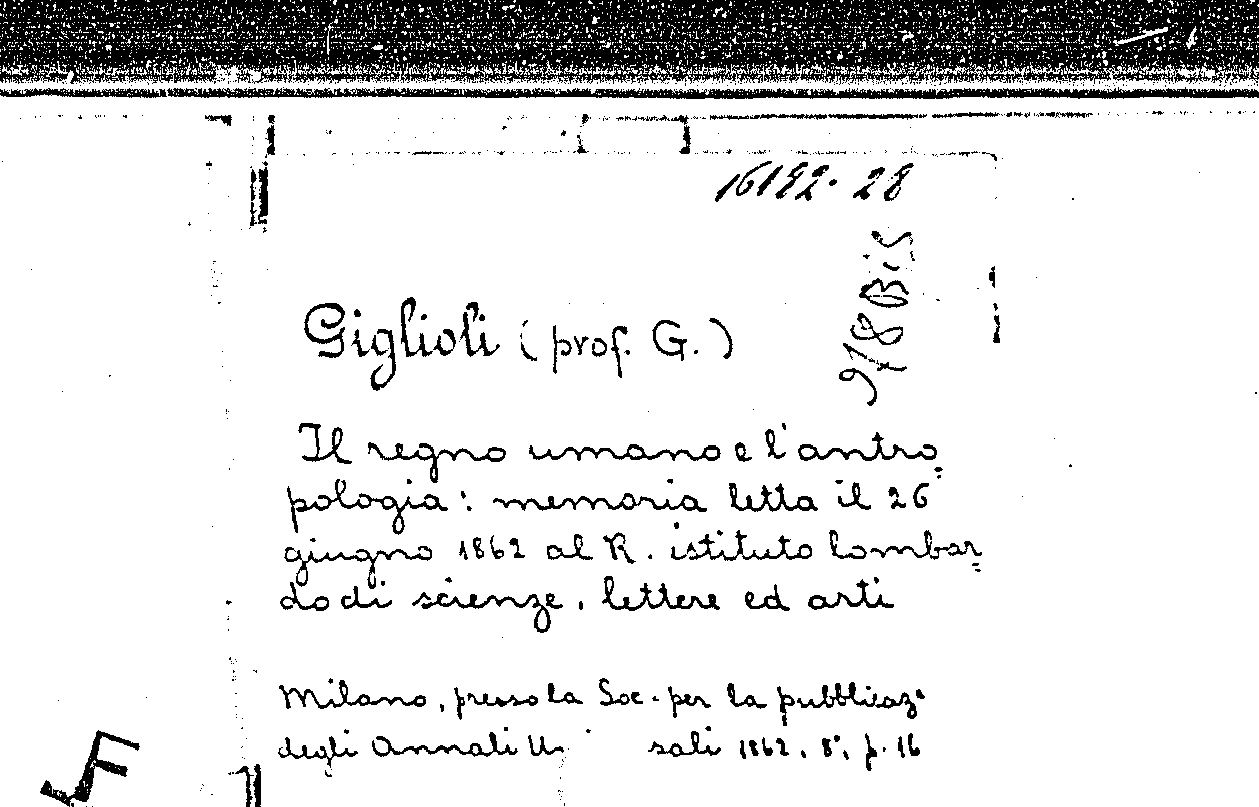 16192. 28
918 Bis
Giglioli (prof. G.)
Il regno umano e l'antro=
pologia: memoria letta il 26
giugno 1862 al R. istituto lombar=
do di scienze, lettere ed arti
Milano, presso la Soc. per la pubblicaz.
degli Annali U sali 1862, 8°, p. 16